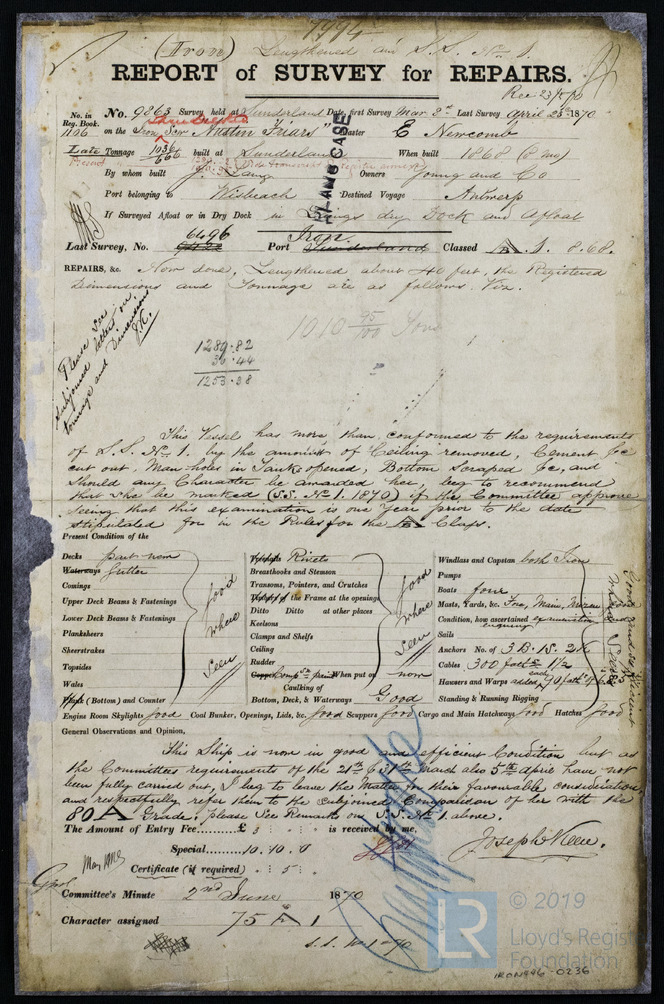 1994
(Iron) Lengthened and S.S. No 1.
REPORT of SURVEY for REPAIRS.
Rec 23/5/70
No. in Reg. Book. 1106
No. 9863 Survey held at Sunderland Date, first Survey Mar 8th Last Survey April 25th 1870
on the Iron Scr "Austin Friars" Master E Newcomb
Late Tonnage 1036/666 built at Sunderland When built 1868
By whom built J. Laing Owners Young and Co
Port belonging to Wisbeach Destined Voyage Antwerp
If Surveyed Afloat or in Dry Dock in Laings dry Dock and Afloat
ELANGCASE
Last Survey, No. 6496 Port Iron. Sunderland Classed A 1. 8.68.
REPAIRS, &c. Now done, Lengthened about 40 feet, the Registered
Dimensions and Tonnage are as follows. Viz.
1010 95/100 Tons
Please see
subjoined letter on
tonnage and Dimensions
J.K.
1289.82
36.44
1253.38
This Vessel has more than conformed to the requirements
of S.S. No 1. by the amount of Ceiling removed, Cement &c
cut out, Man holes in Tanks opened, Bottom Scraped &c, and
Should any Character be awarded her, beg to recommend
that she be marked (S.S. No 1. 1870) if the Committee approve
seeing that this examination is one Year prior to the date
stipulated for in the Rules for the A Class.
Present Condition of the
Decks part new
Waterways Gutter
Comings
Upper Deck Beams & Fastenings
Lower Deck Beams & Fastenings
Planksheers
Sheerstrakes
Topsides
Wales
(Bottom) and Counter
Good where Seen
Rivets
Breasthooks and Stemson
Transoms, Pointers, and Crutches
of the Frame at the openings
Ditto Ditto at other places
Keelsons
Clamps and Shelfs
Ceiling
Rudder
When put on now
Caulking of
Bottom, Deck, & Waterways Good
Good where Seen
Windlass and Capstan both Iron
Pumps
Boats four
Masts, Yards, &c. Fore, Main, Mizen Good
Condition, how ascertained examination and enquiring
Sails
Anchors No. of 3 B. 1 S. 2 K
Cables 300 faths 1 1/2
Hawsers and Warps added, each 90 faths
Standing & Running Rigging
Engine Room Skylights good Coal Bunker, Openings, Lids, &c. good Scuppers good Cargo and Main Hatchways good Hatches good
General Observations and Opinion,
This Ship is now in good and efficient Condition but as
the Committees requirements of the 21st & 31st March also 5th April have not
been fully carried out, I beg to leave the Matter in their favourable consideration
and respectfully refer them to the Subjoined Comparison of her with the
80 A Grade, please See Remarks on S.S. No 1 above.
The Amount of Entry Fee......£ 3 : : is received by me,
Special...... 10.10.0
Certificate (if required) . 5 :
Joseph Keen.
Committee's Minute 2nd June 1870
Character assigned 75 A 1
S.S. No 1-70
LR
© 2019
Lloyd's Register
Foundation
IRON446-0236